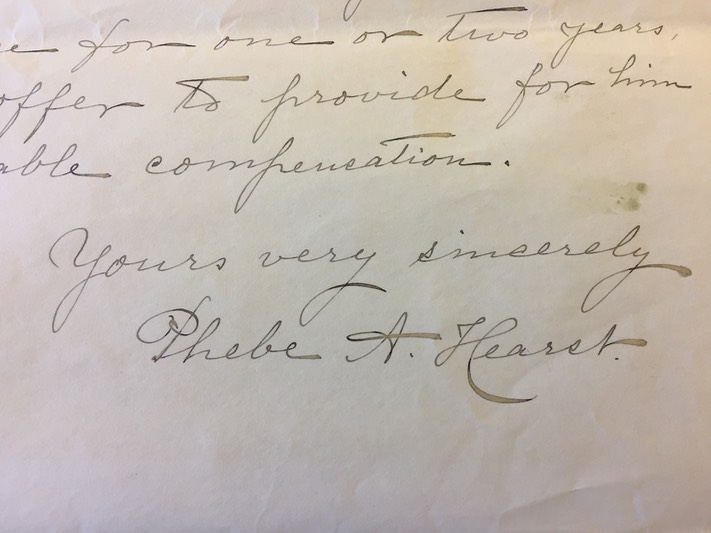 e for one or two years,
offer to provide for him
able compensation.
Yours very sincerely
Phebe A. Hearst.